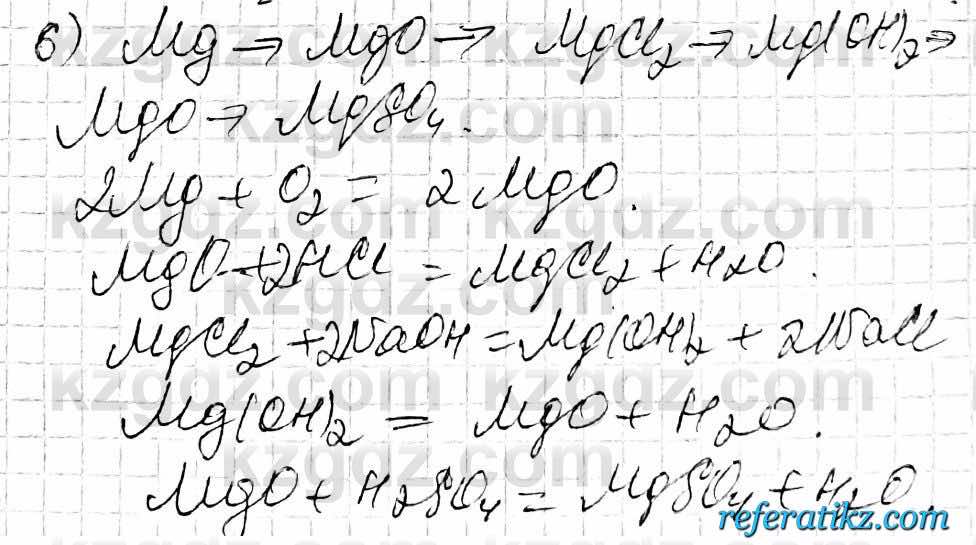 б) Mg → MgO → MgCl₂ → Mg(OH)₂ →
MgO → MgSO₄.
2Mg + O₂ = 2MgO.
MgO + 2HCl = MgCl₂ + H₂O.
MgCl₂ + 2NaOH = Mg(OH)₂ + 2NaCl
Mg(OH)₂ = MgO + H₂O.
MgO + H₂SO₄ = MgSO₄ + H₂O.
kzgdz.com
referatikz.com